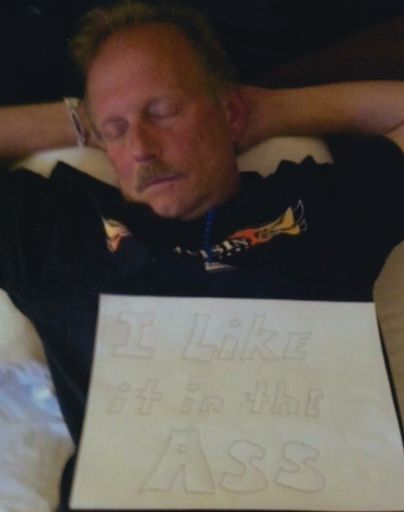 I LikE
it in thE
ASS